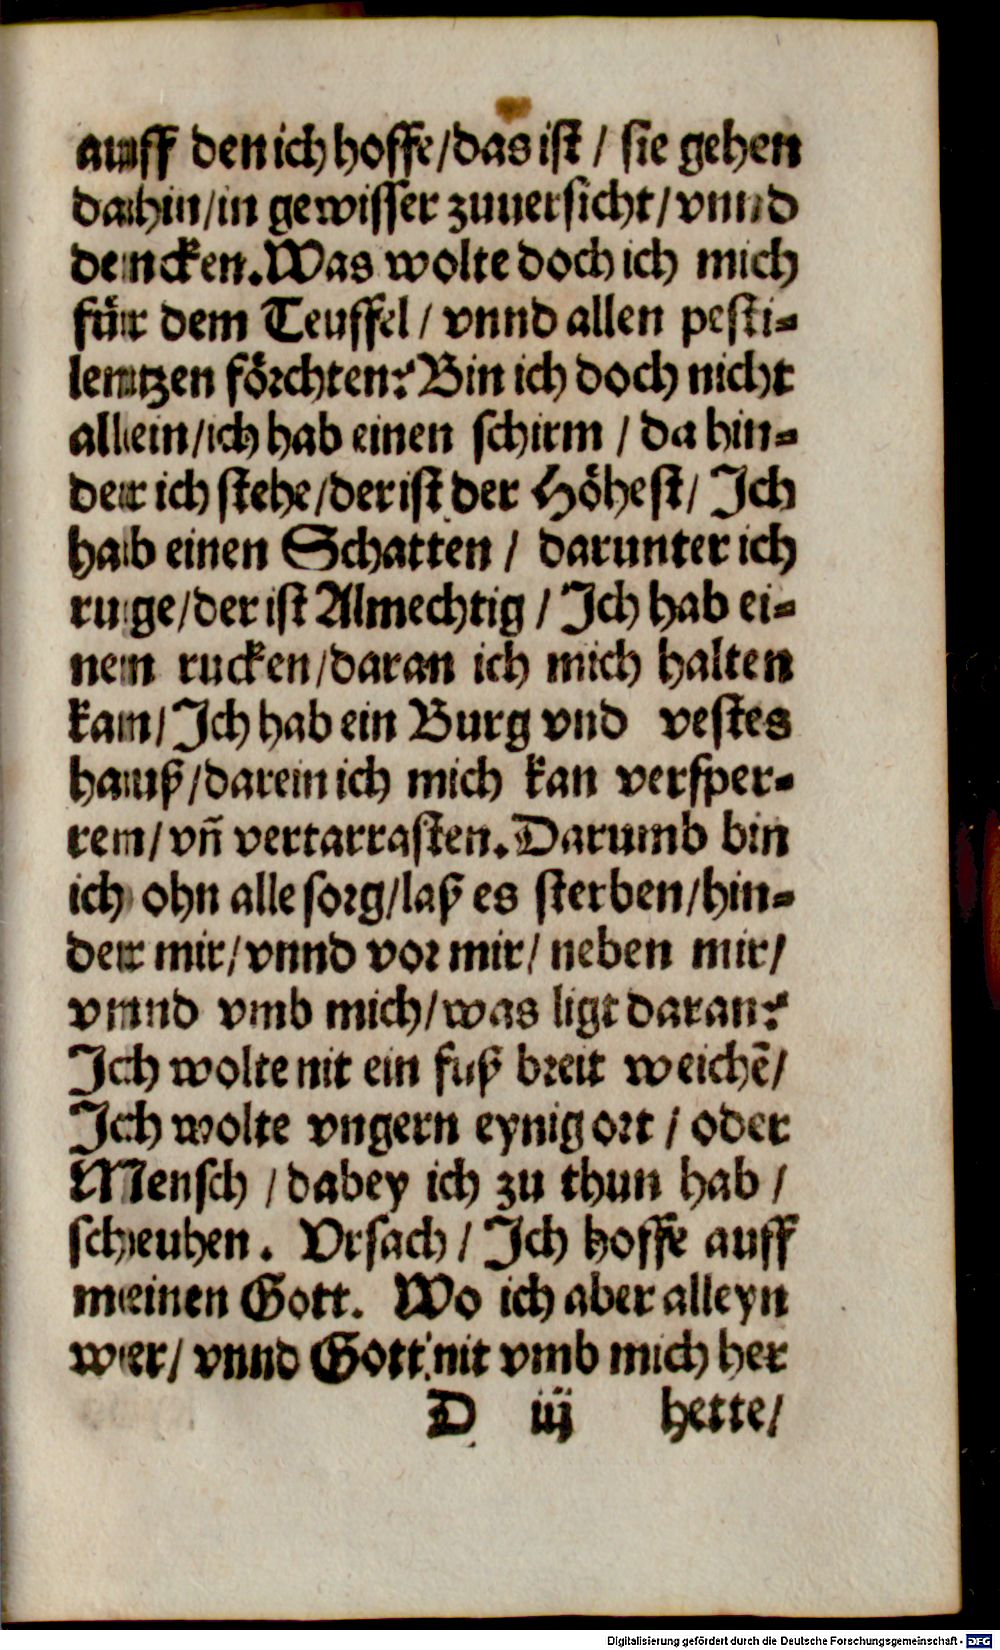 auff den ich hoffe/das ist / sie gehen
dahin/in gewisser zuuersicht/vnnd
dencken.Was wolte doch ich mich
für dem Teuffel / vnnd allen pesti-
lentzen förchten? Bin ich doch nicht
allein/ich hab einen schirm / da hin-
der ich stehe/der ist der Höhest/ Ich
hab einen Schatten / darunter ich
ruge/der ist Almechtig / Ich hab ei-
nen rucken/daran ich mich halten
kan/Ich hab ein Burg vnd vestes
hauß/darein ich mich kan versper-
ren/vñ vertarrasten.Darumb bin
ich ohn alle sorg/laß es sterben/hin-
der mir/vnnd vor mir/ neben mir/
vnnd vmb mich/was ligt daran?
Ich wolte nit ein fuß breit weichẽ/
Ich wolte vngern eynig ort / oder
Mensch / dabey ich zu thun hab /
scheuhen. Vrsach / Ich hoffe auff
meinen Gott. Wo ich aber alleyn
wer/ vnnd Gott nit vmb mich her
D iij hette/
Digitalisierung gefördert durch die Deutsche Forschungsgemeinschaft - DFG